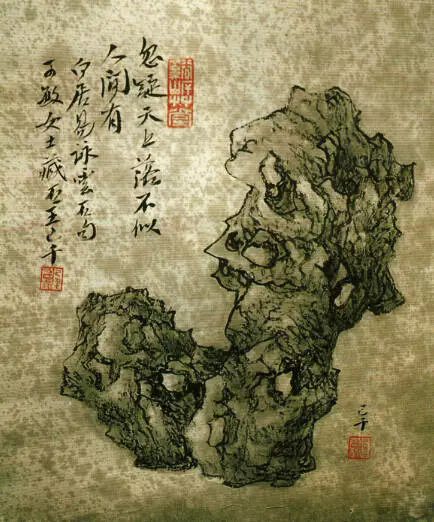 忽疑天上落不似
人間有
白居易詠雲石句
可敏女士藏石王己千
己千